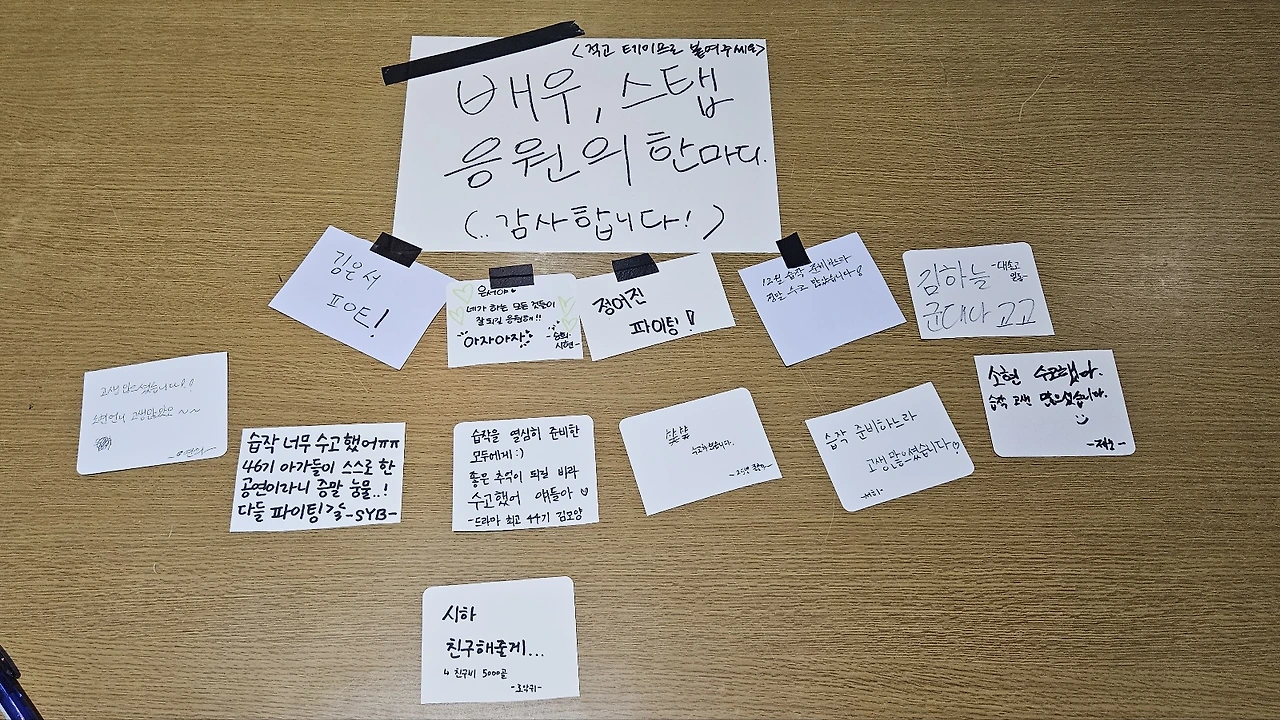 <적고 테이프로 붙여주세요>
배우, 스탭
응원의 한마디.
(..감사합니다! )
김은서
파이팅!
은서야
네가 하는 모든 것들이
잘 되길 응원해!!
아자아잣
정어진
파이팅!
12월 습작 준비하느라
다들 수고 많았습니다
김하늘
군대나 고고
고생 많으셨습니다!!
소현언니 고생많았요 ~~
습작 너무 수고했어ㅠㅠ
46기 아가들이 스스로 한
공연이라니 증말 눙물..!
다들 파이팅길 -SYB-
습작을 열심히 준비한
모두에게 :)
좋은 추억이 되길 바라
수고했어 얘들아 ♡
-드라마 최고 44기 김모양
습작 준비하느라
고생 많으셨습니다♡
소현 수고했다.
습작 고생 많으셨습니다.
시하
친구해줄게...
ㄴ 친구비 5000골